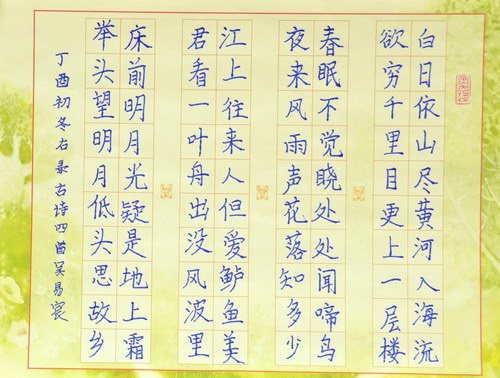 白日依山尽黄河入海流
欲穷千里目更上一层楼
春眠不觉晓处处闻啼鸟
夜来风雨声花落知多少
江上往来人但爱鲈鱼美
君看一叶舟出没风波里
床前明月光疑是地上霜
举头望明月低头思故乡
丁酉初冬右录古诗四首吴易宸